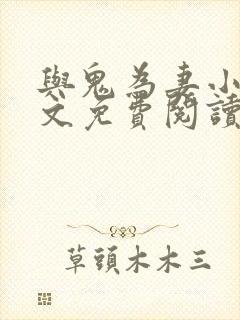 與鬼為妻小
文免費閱讀
草頭木木三